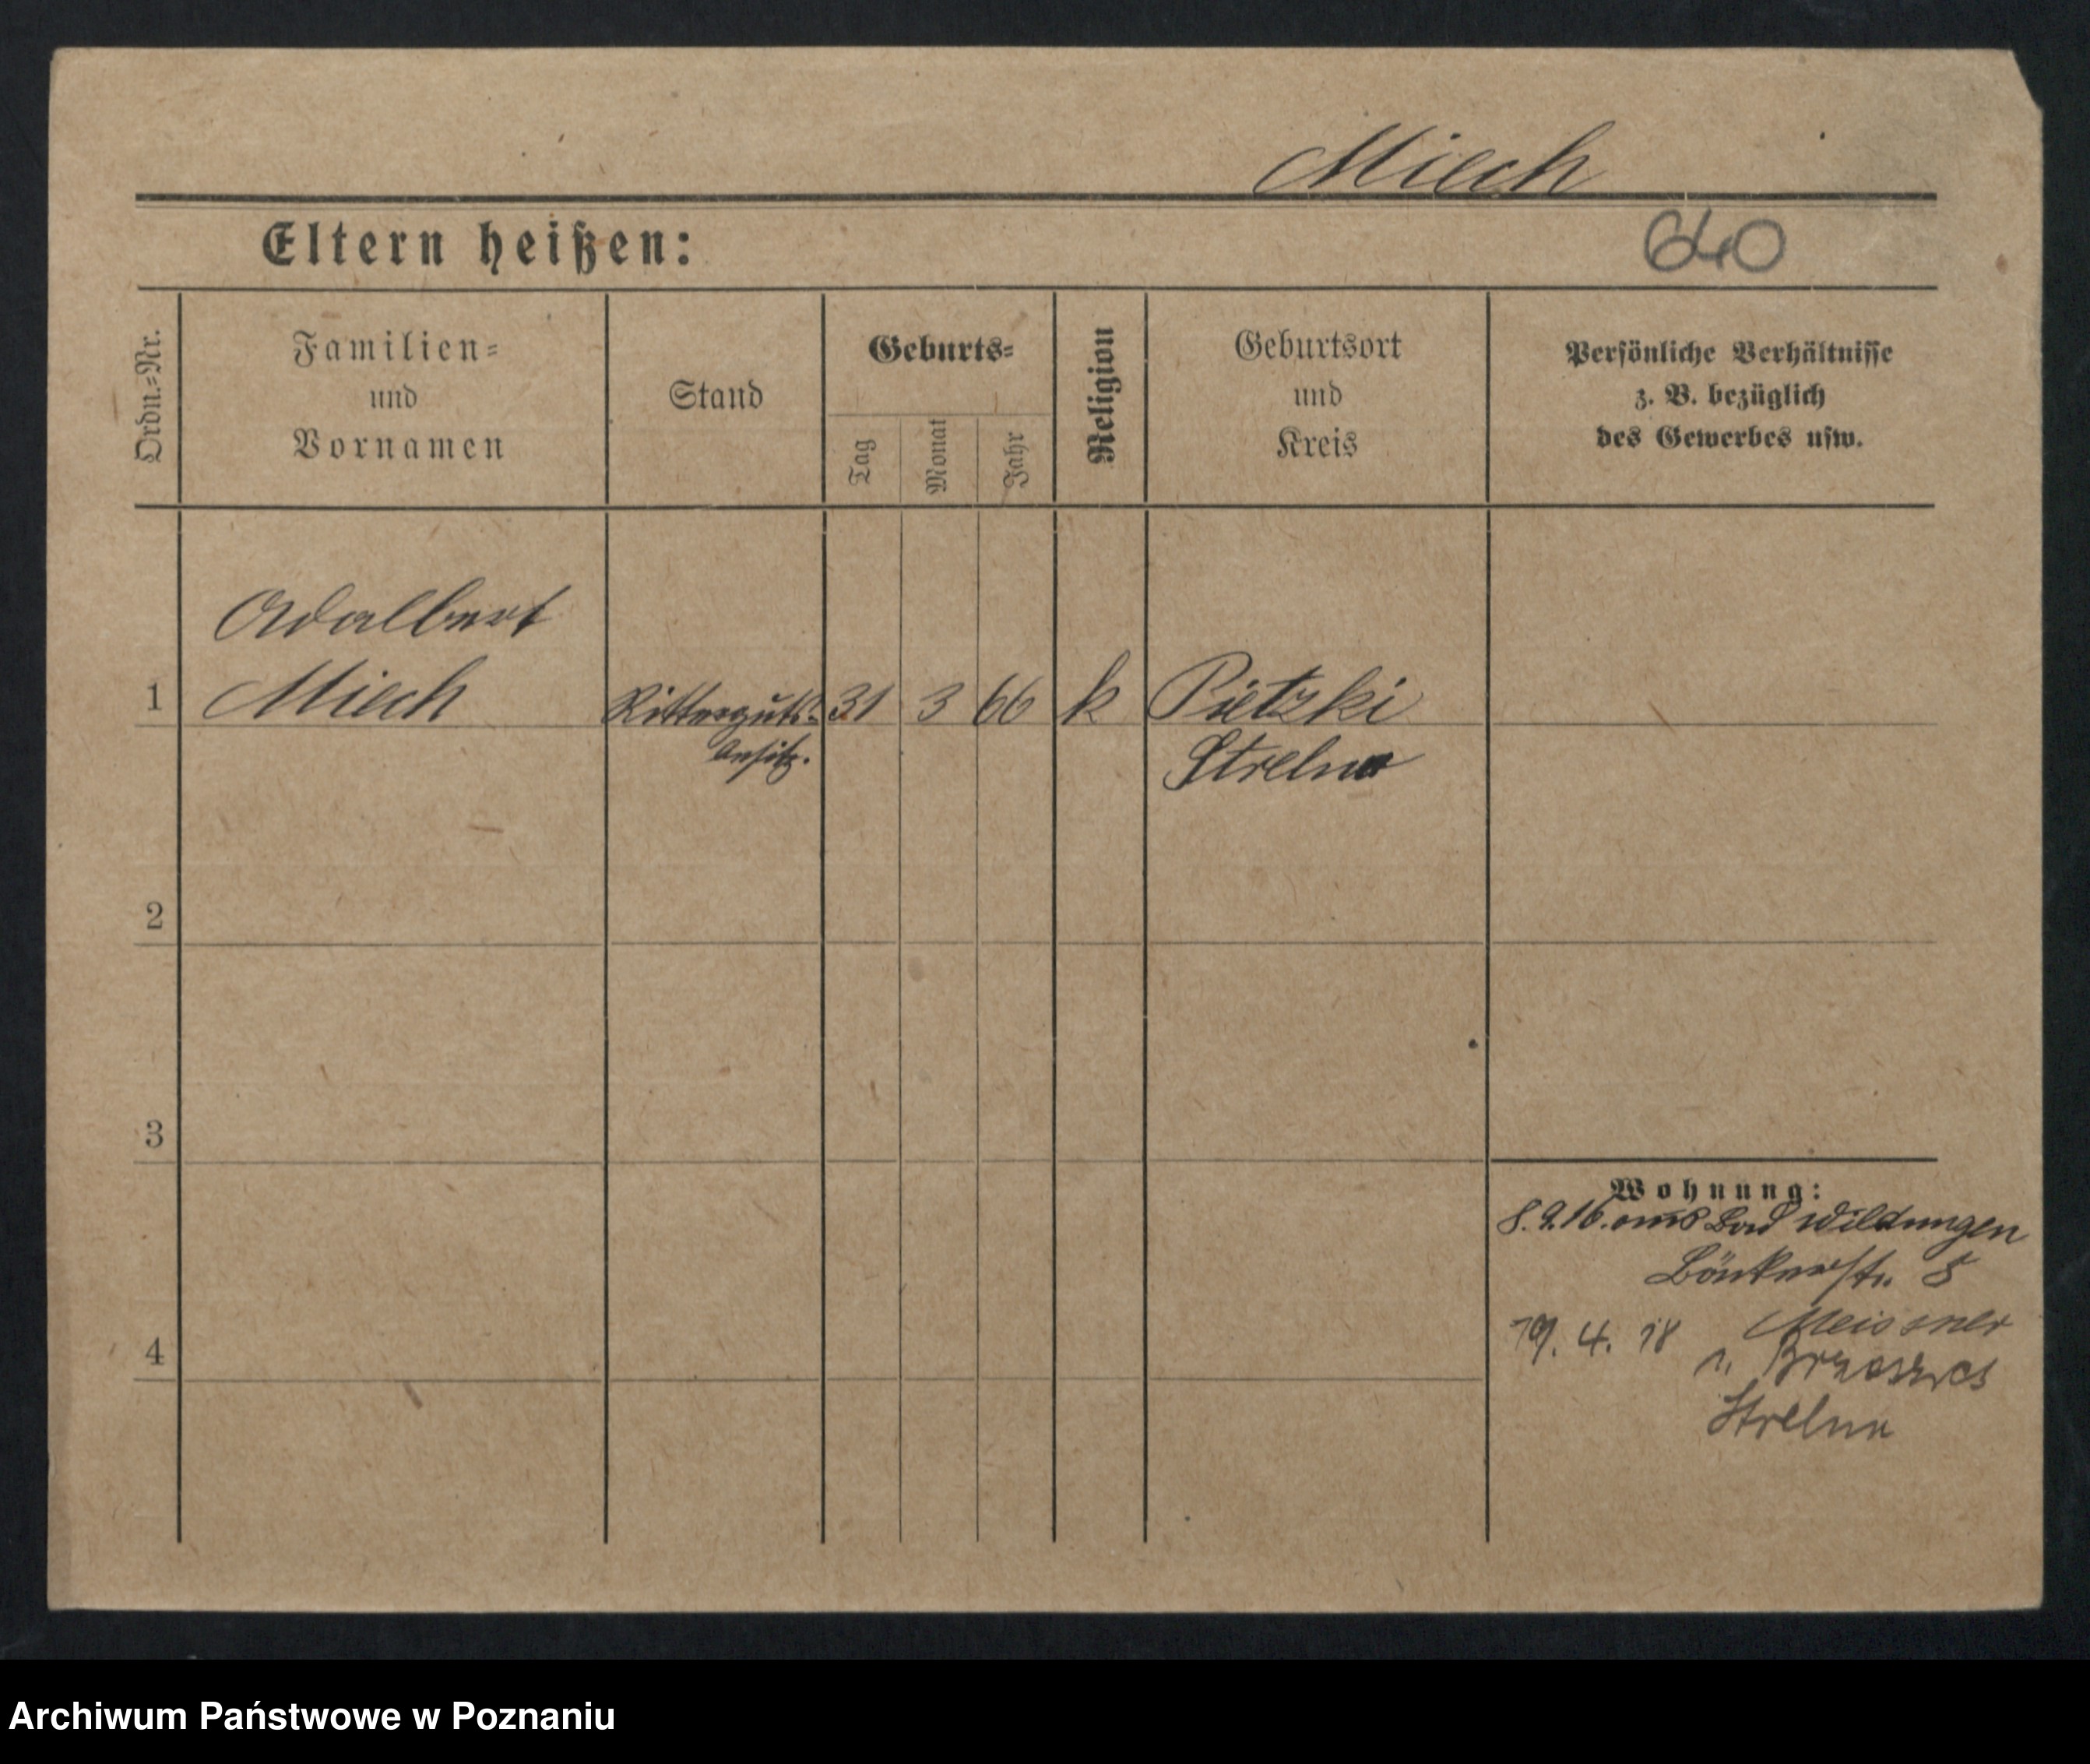 Miech
Eltern heißen:
640
Ordn.=Nr.
Familien=
und
Vornamen
Stand
Geburts=
Tag
Monat
Jahr
Religion
Geburtsort
und
Kreis
Persönliche Verhältnisse
z. B. bezüglich
des Gewerbes usw.
Adalbert
1 Miech Ritterguts- 31 3 66 k Pietzki
besitz. Strelno
2
3
Wohnung:
8.9.16. aus Bad Wildungen
5
4
19. 4. 18 Meissner
n.
Strelno
Archiwum Państwowe w Poznaniu